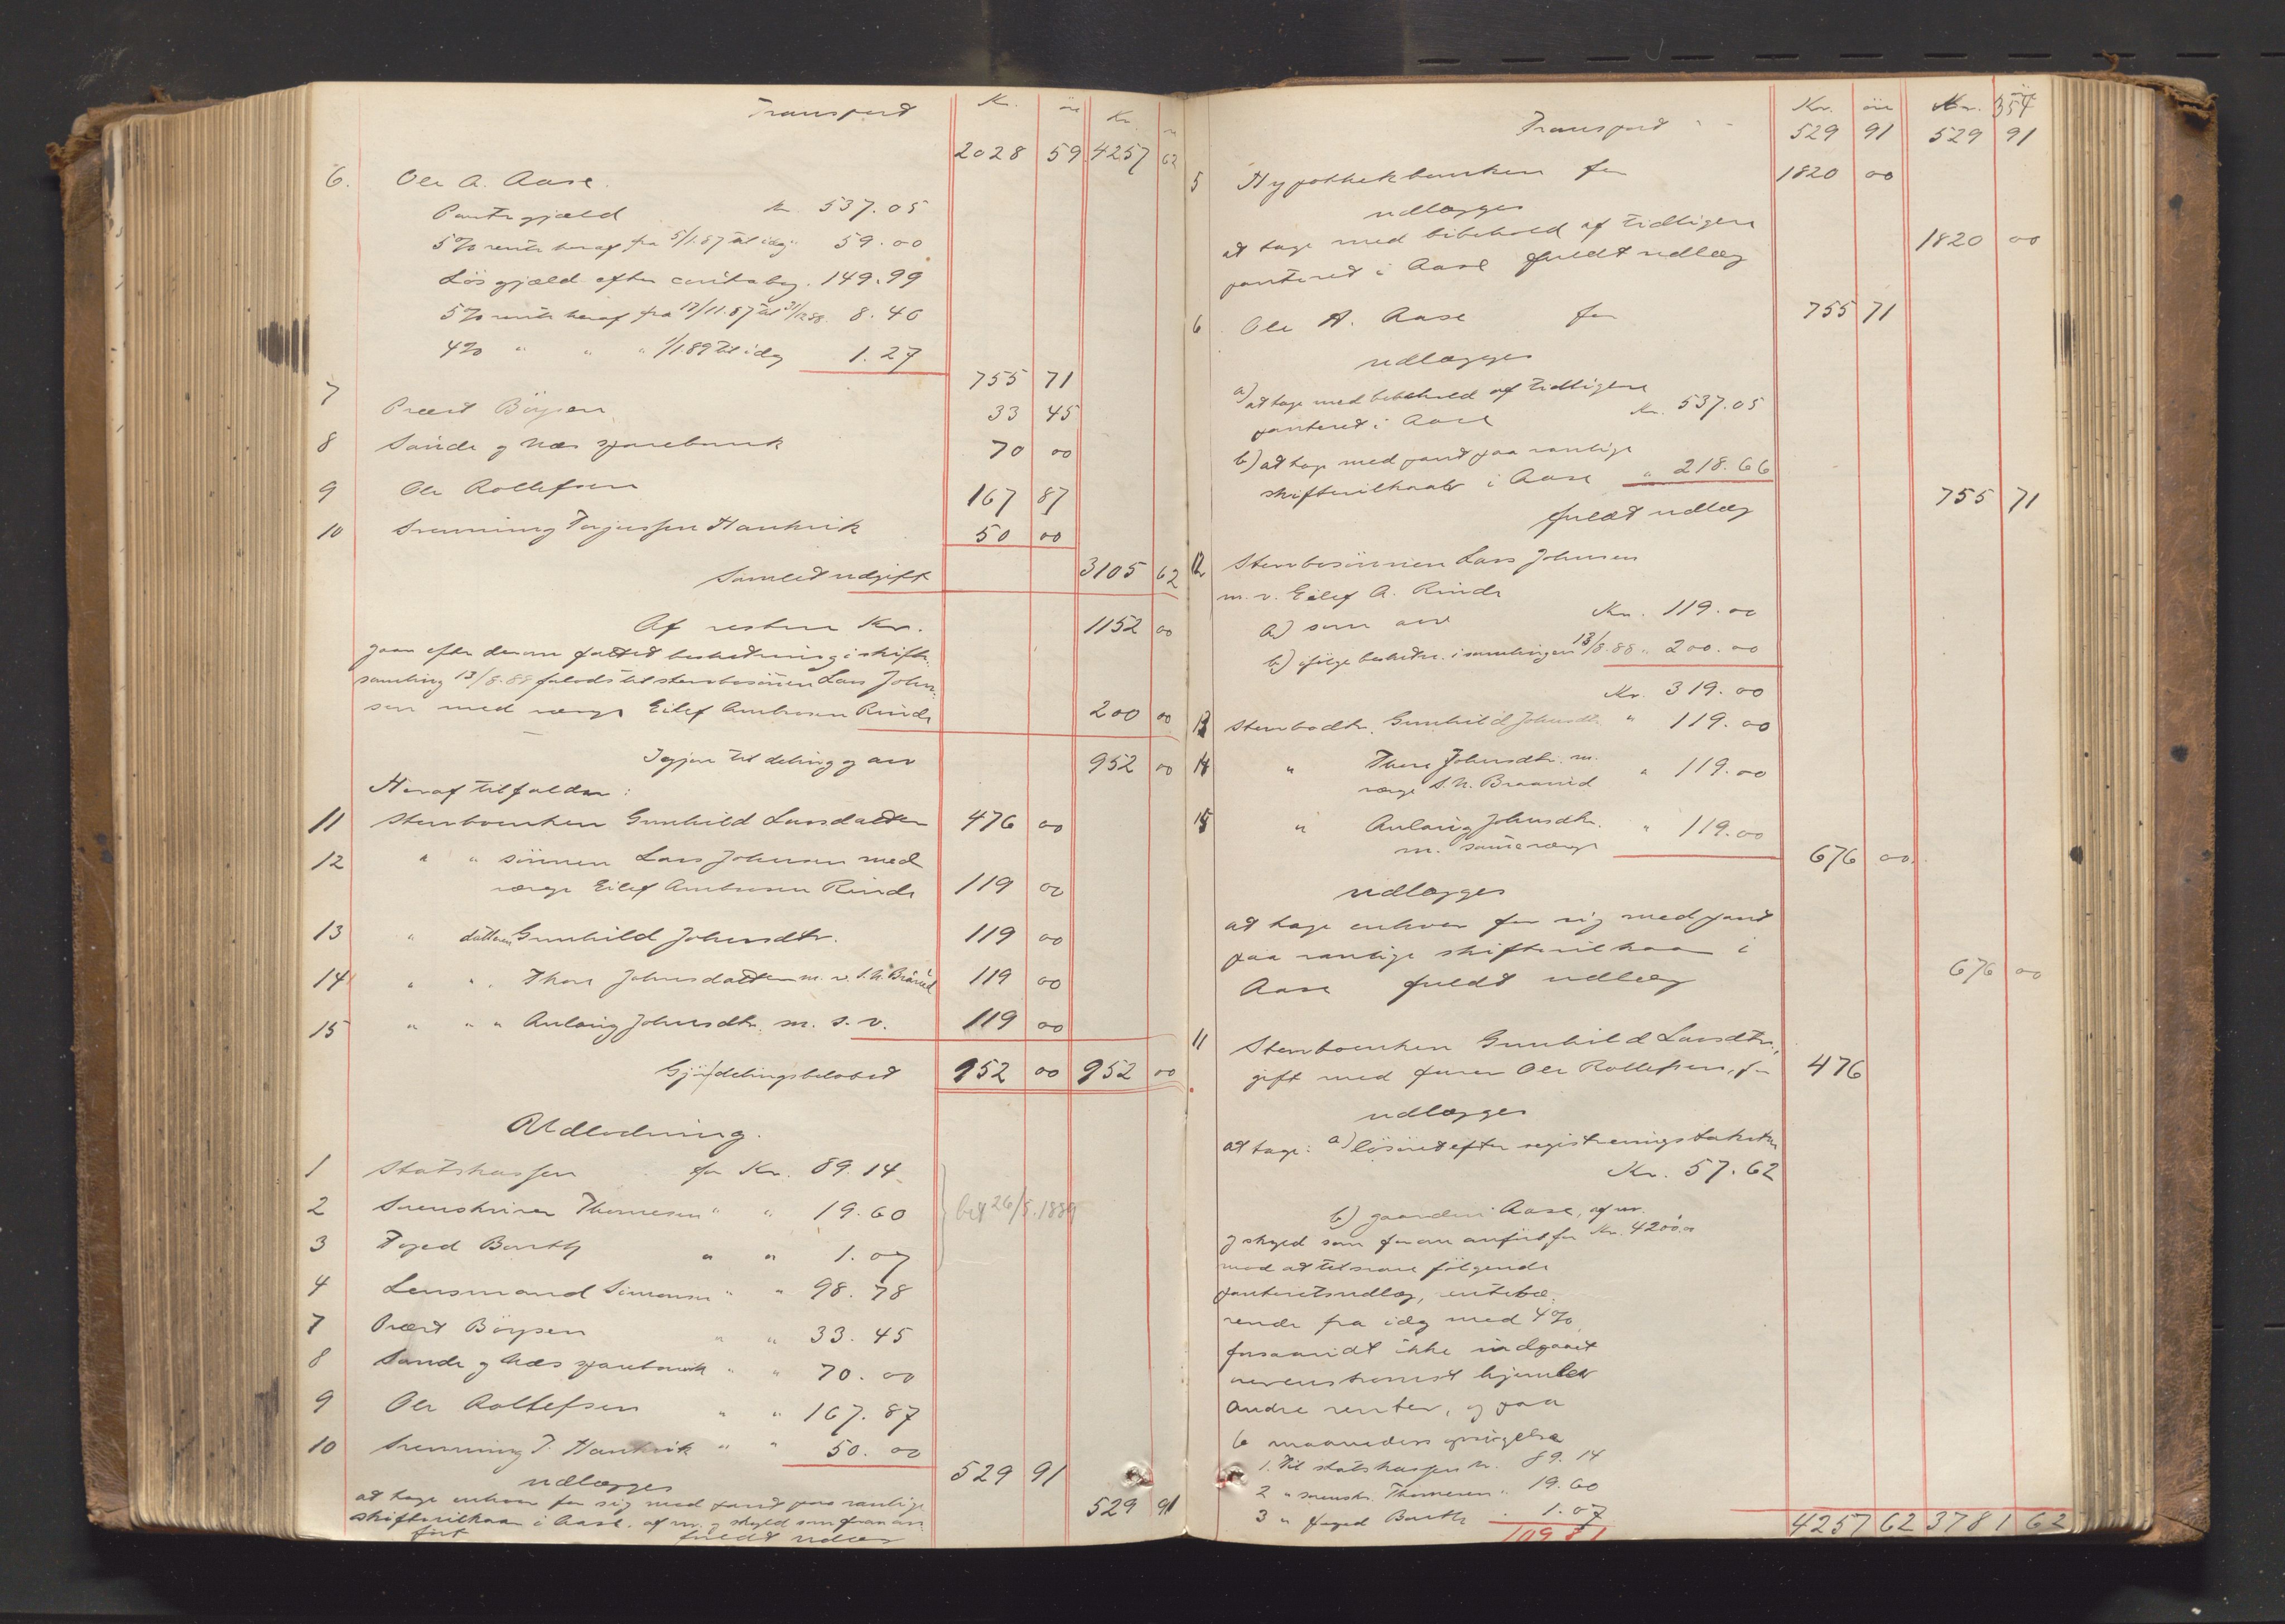 Transport
Kr. öre Kr.
2028 59 4257 62
6. Ole A. Aase.
Pantegjæld kr. 537.05
5% rente heraf fra 5/1.87 til idag " 59.00
Lös gjæld efter contrabog. 149.99
5% rente heraf fra 17/11.87 til 31/12 88. 8.40
4% " " " 1/1.89 til idag 1.27
755 71
7 Præst Böysen 33 45
8 Sande og Næs sparebank 70 00
9 Ole Rollefsen 167 87
10 Svenning Torjussen Haukvik 50 00
Samlet udgift 3105 62
Af resten Kr. 1152 00
gaar efter derom fattet beslutning i skifte-
samling 13/8.88 forlods til sterbosönnen Lars John-
sen med værge Eilef Ambrosen Rinde 200 00
Igjen til deling og arv 952 00
Heraf tilfalder:
11 Sterboenken Gunhild Larsdatter 476 00
12 " " sönnen Lars Johnsen med
værge Eilef Ambrosen Rinde 119 00
13 " datteren Gunhild Johnsdtr. 119 00
14 " " Thore Johnsdatter m. v. S. N. Braavid 119 00
15 " " " Anlaug Johnsdtr. m. s. v. 119 00
Gjör delingsbelöbet 952 00 952 00
Udlodning.
1 Statskassen for Kr. 89.14
2 Sorenskriver Thomesen " " 19.60
bet 26/5.1889
3 Foged Barth " " 1.07
4 Lensmand Simonsen " " 98.78
7 Præst Böysen " " 33.45
8 Sande og Næs sparebank " " 70.00
9 Ole Rollefsen " " 167.87
10 Svenning T. Haukvik " " 50.00
529 91
udlægges
at tage enhver for sig med pant paa vanlige
skiftevilkaar i Aase, af nr. og skyld som foran an-
fört fuldt udlæg
529 91
354
Kr. öre Kr. öre
Transport " " 529 91 529 91
5 Hypothekbanken for 1820 00
udlægges
at tage med bibehold af tidligere
panteret i Aase fuldt udlæg 1820 00
6 Ole A. Aase for 755 71
udlægges
a) at tage med bibehold af tidligere
panteret i Aase Kr. 537.05
b) at tage med pant paa vanlige
skiftevilkaar i Aase " 218.66
fuldt udlæg 755 71
12 Sterbosönnen Lars Johnsen
m. v. Eilef A. Rinde
a) som arv Kr. 119.00
b) ifölge beslutn. i samlingen 13/8.88 " 200.00
Kr. 319.00
13 Sterbodtr. Gunhild Johnsdtr. " 119.00
14 " Thore Johnsdtr. m.
værge S. N. Braavid " 119.00
15 " Anlaug Johnsdtr. " 119.00
m. samme værge
676 00
udlægges
at tage enhver for sig med pant
paa vanlige skiftevilkaar i
Aase fuldt udlæg 676 00
11 Sterboenken Gunhild Larsdtr.,
gift med Ole Rollefsen, for 476
udlægges
at tage: a) lösöret efter registreringstaksten
Kr. 57.62
b) gaarden Aase, af nr.
og skyld som foran anfört for Kr. 4200.00
mod at tilsvare fölgende
panteretsudlæg, rentebæ-
rende fra idag med 4%
forsaavidt ikke indgaaet
overenskomst hjemler
andre renter, og paa
6 maaneders opsigelse
1. Til statskassen kr. 89.14
2 " sorenskr. Thomesen " 19.60
3 " foged Barth " 1.07
109 81
4257 62 3781 62